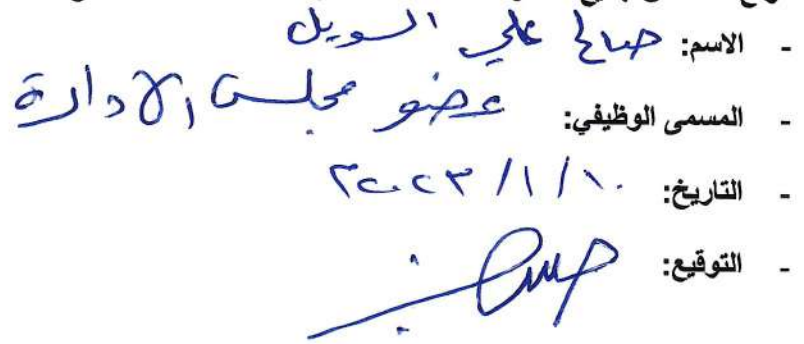 - الاسم: صالح علي السويل
- المسمى الوظيفي: عضو مجلس الادارة
- التاريخ: ٢٠٢٣/١/١٠
- التوقيع: